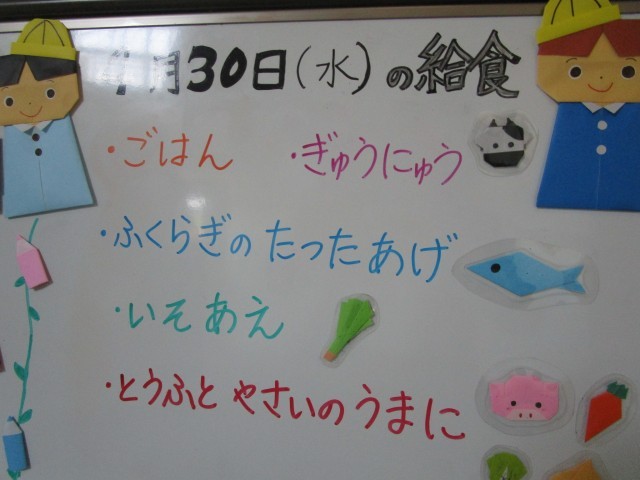 月30日(水)の給食
・ごはん ・ぎゅうにゅう
・ふくらぎのたったあげ
・いそあえ
・とうふとやさいのうまに